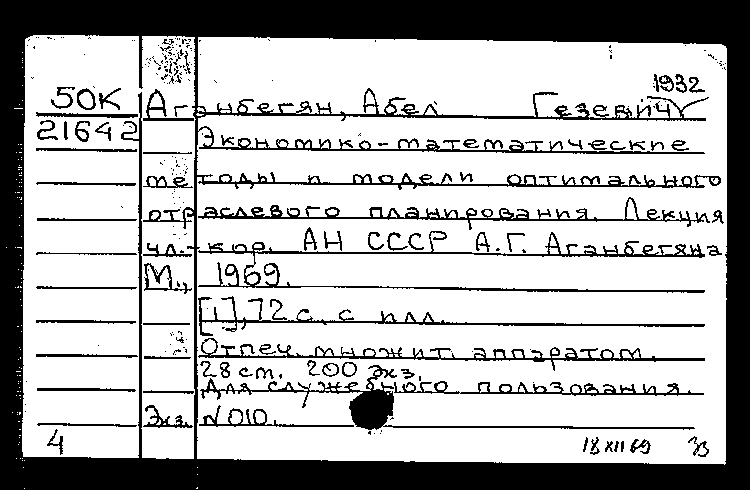 1932
50К Аганбегян, Абел Гезевич
21642 Экономико-математические
методы и модели оптимального
отраслевого планирования. Лекция
чл.-кор. АН СССР А.Г. Аганбегяна
М., 1969.
[1], 72 с. с илл.
Отпеч. множит. аппаратом.
28 см. 200 экз.
Для служебного пользования.
Экз. N 010.
4 18 XII 69